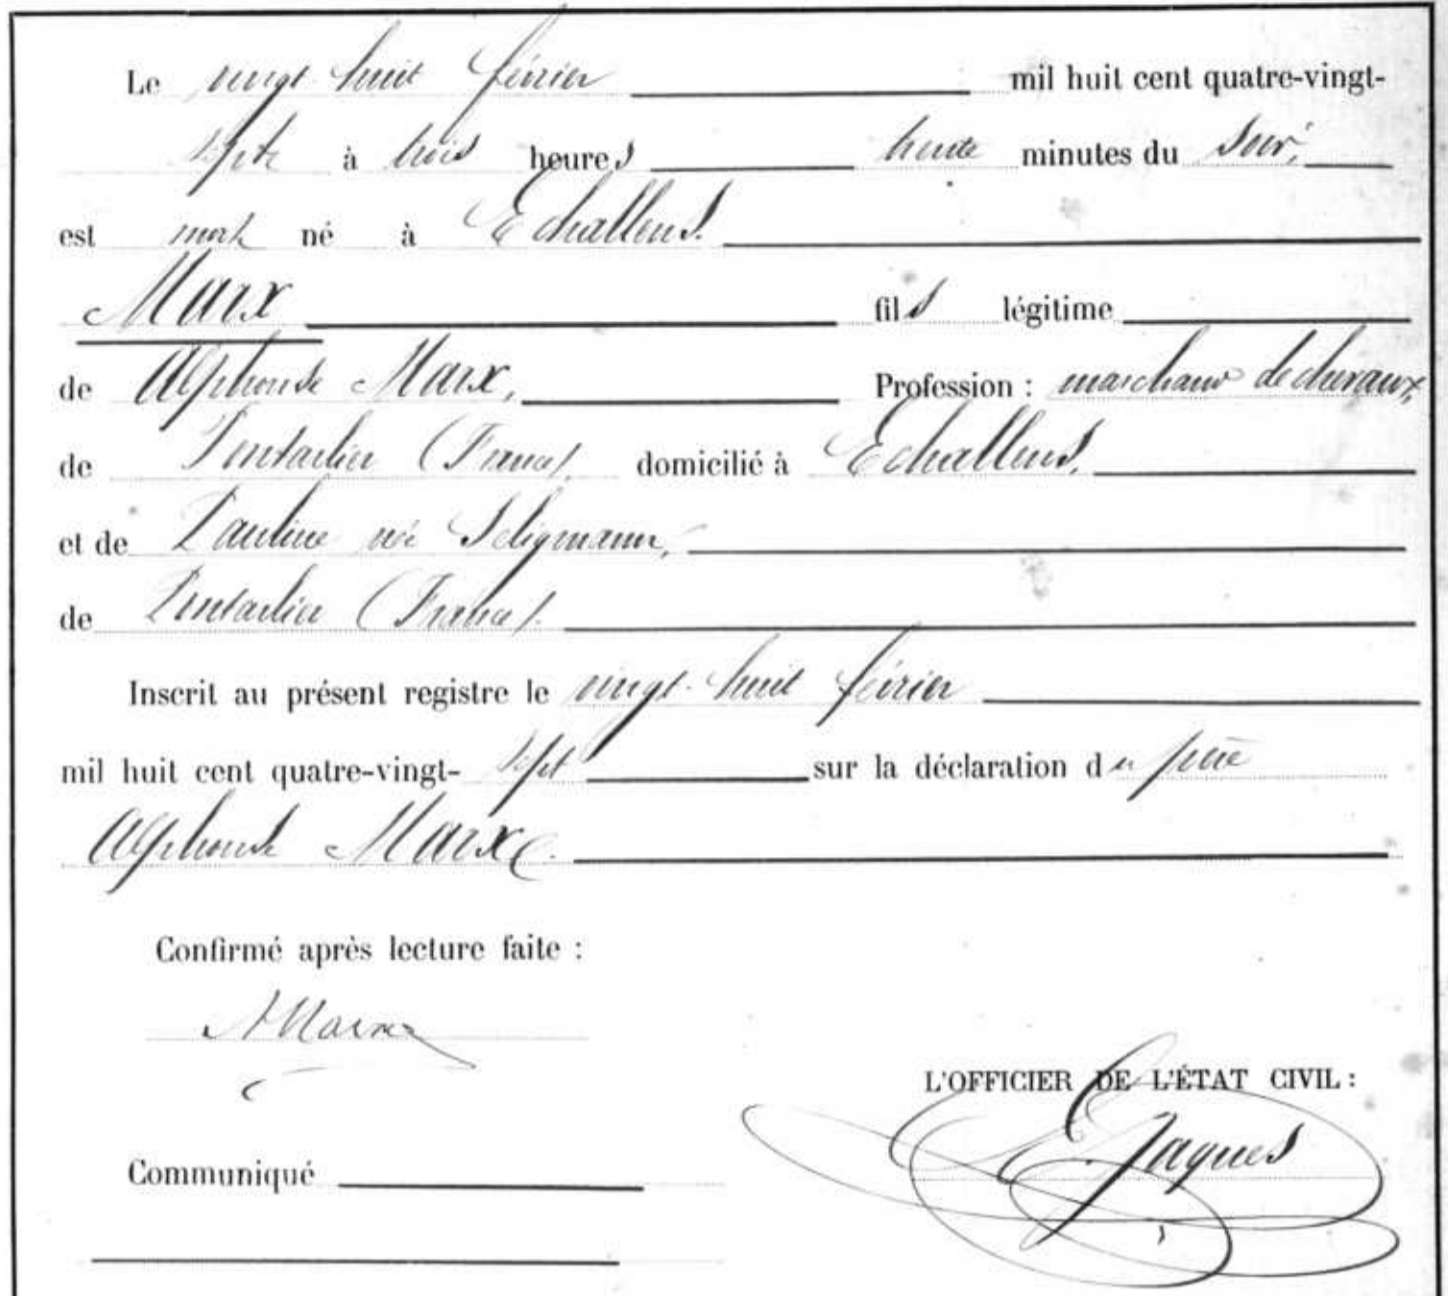 Le vingt-huit février mil huit cent quatre-vingt-
sept à trois heures trente minutes du soir,
est mort né à Echallens.
Marx fils légitime
de Alphonse Marx, Profession : marchand de chevaux,
de Pontarlier (France), domicilié à Echallens,
et de Pauline née Seligmann,
de Pontarlier (France).
Inscrit au présent registre le vingt-huit février
mil huit cent quatre-vingt- sept sur la déclaration du père
Alphonse Marx.
Confirmé après lecture faite :
A Marx
L'OFFICIER DE L'ÉTAT CIVIL :
E. Jaques
Communiqué